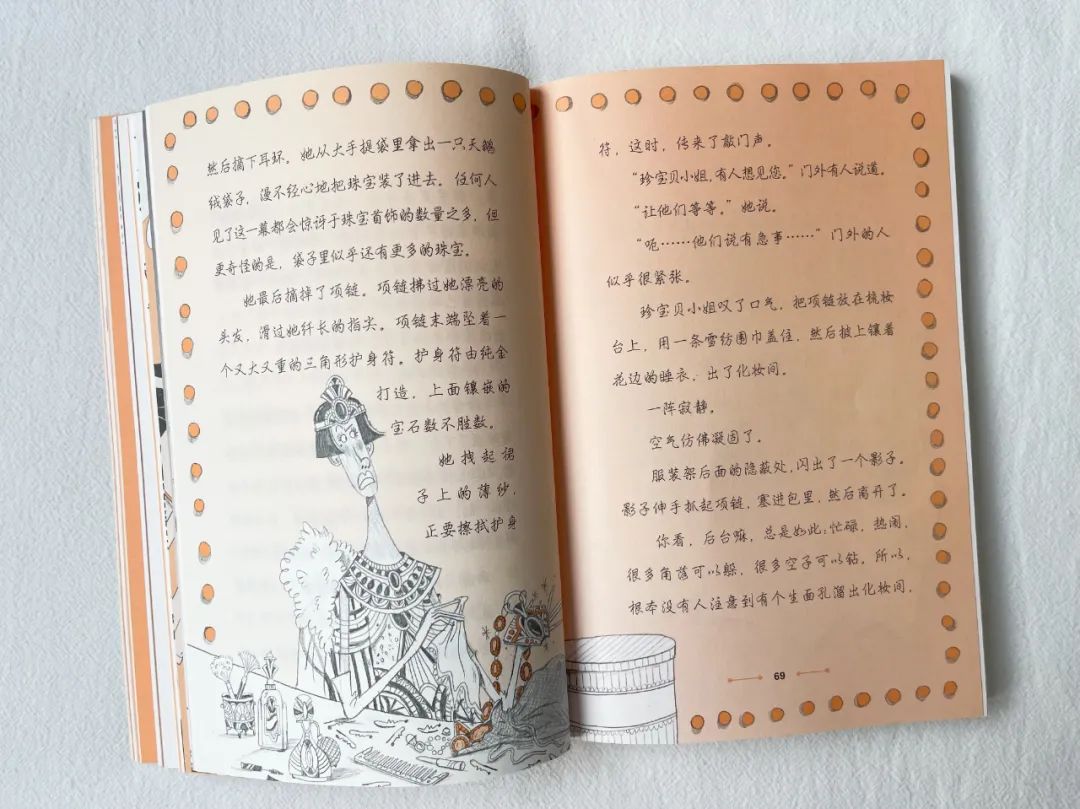 然后摘下耳环。她从大手提袋里拿出一只天鹅
绒袋子，漫不经心地把珠宝装了进去。任何人
见了这一幕都会惊讶于珠宝首饰的数量之多，但
更奇怪的是，袋子里似乎还有更多的珠宝。
她最后摘掉了项链。项链拂过她漂亮的
头发，滑过她纤长的指尖。项链末端坠着一
个又大又重的三角形护身符。护身符由纯金
打造，上面镶嵌的
宝石数不胜数。
她找起裙
子上的薄纱，
正要擦拭护身
符，这时，传来了敲门声。
“珍宝贝小姐，有人想见您。”门外有人说道。
“让他们等等。”她说。
“呃……他们说有急事……”门外的人
似乎很紧张。
珍宝贝小姐叹了口气，把项链放在梳妆
台上，用一条雪纺围巾盖住，然后披上镶着
花边的睡衣，出了化妆间。
一阵寂静。
空气仿佛凝固了。
服装架后面的隐蔽处，闪出了一个影子。
影子伸手抓起项链，塞进包里，然后离开了。
你看，后台嘛，总是如此：忙碌，热闹，
很多角落可以躲，很多空子可以钻。所以，
根本没有人注意到有个生面孔溜出化妆间，
69